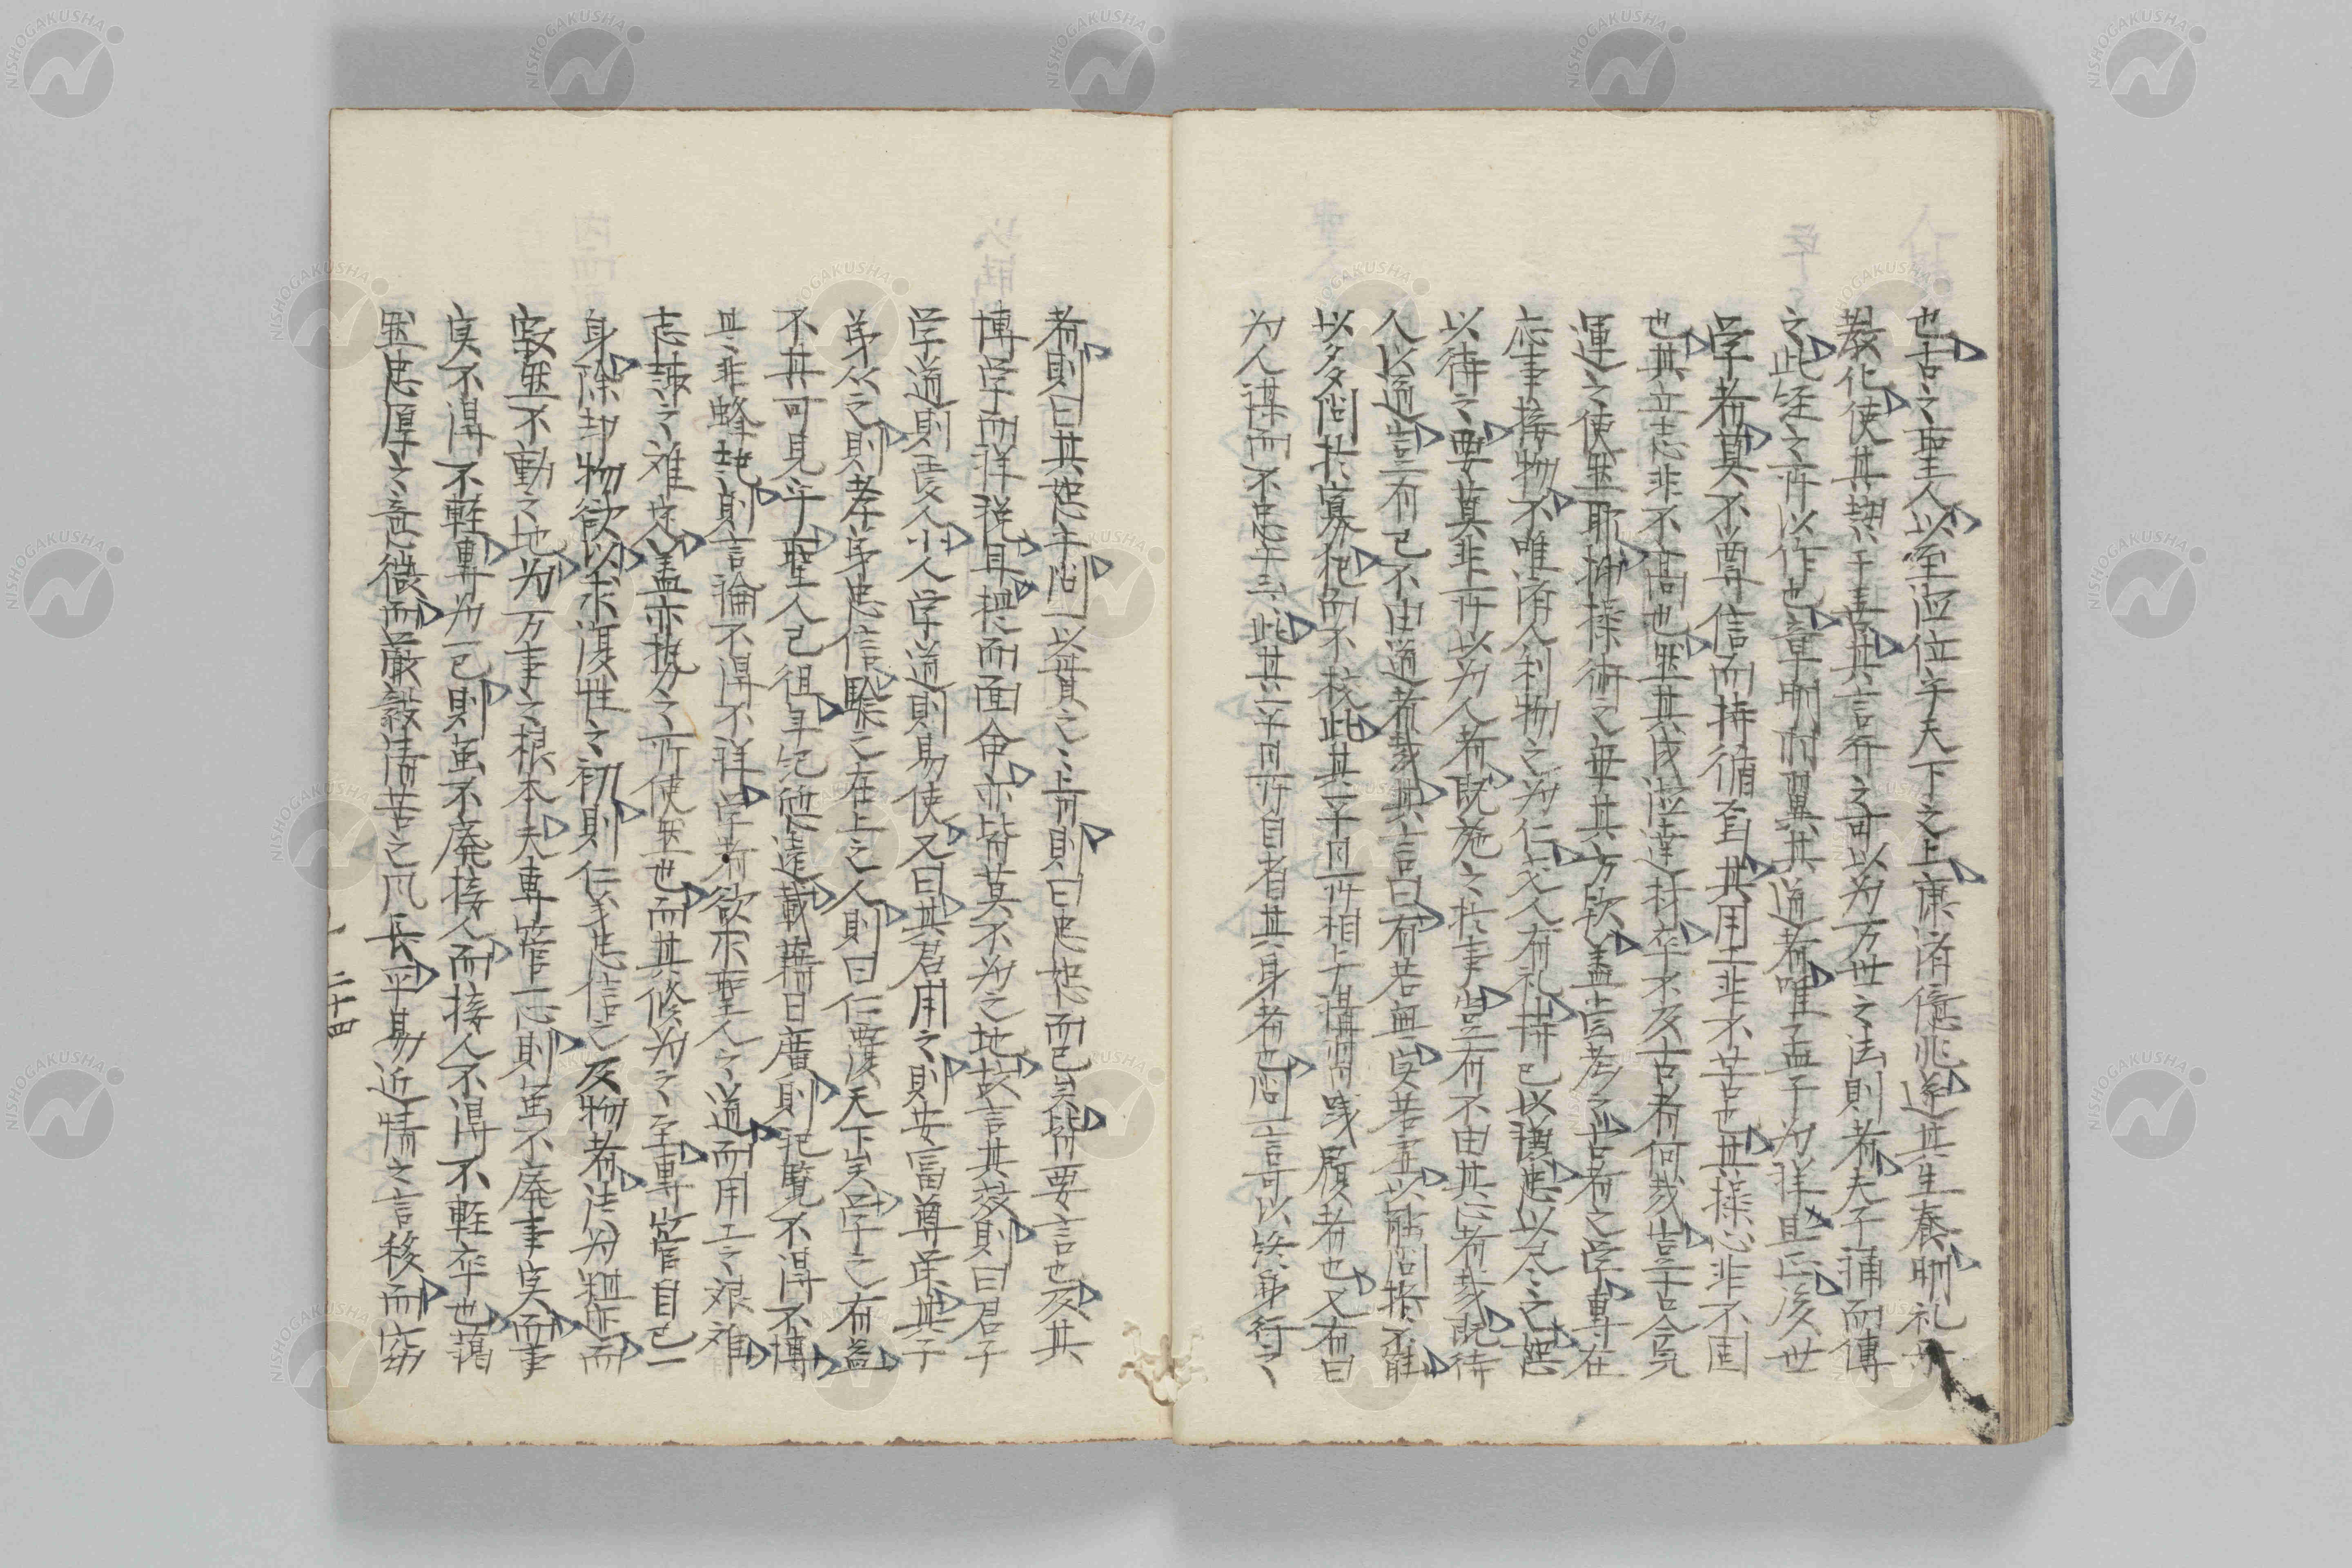 也古之聖人以至涖位乎天下之上康済億兆遂其生養明礼
教化使其熱于善其言行之可以为万世之法則者夫子誦而傳
之此経之所以作也章明羽翼其道者唯孟子为詳且正後世
学者莫不尊信而持循焉其用工非不苦也其操心非不固
也其立志非不高也然其成涖達材卒不及古者何哉豈古今気
運之使然耶抑操術之無其方歟盖嘗考之古者之学専在
応事接物不唯済人利物之为仁交人有礼持己以謙忠以尽之恕
以待之要莫非所以为人者既施之於事豈有不由其心者哉既待
人以道豈有己不由道者哉其言曰有若無実若虚以能問於不能
以多問於寡犯而不校此其平日所相与講習践履者也又有曰
为人謀而不忠乎云云此其平日所自省其身者也問一言可以終身行之
者則曰其恕乎問一以貫之之旨則曰忠恕而已矣皆要言也及其
博学而詳説耳提而面命亦皆莫不为之地故言其效則曰君子
学道則愛人小人学道則易使又曰其君用之則安富尊栄其子
弟従之則孝弟忠信験之在上之人則曰仁覆天下矣学之有益
不其可見乎聖人已徂年紀悠遠載藉日廣則記覧不得不博
是非蜂起則言論不得不詳学者欲求聖人之道而用工之艱難
志諫之难定盖亦勢之所使然也而其修为之至専嘗自己一
身除却物欲以求復性之初則仁義忠信之及物者法为粗作而
寂然不動之地为万事之根本夫専管一心則虽不廃事実而事
実不得不軽専为一己則虽不廃接人而接人不得不軽卒也藹
然忠厚之意微而厳毅清苦之凡長平易近情之言移而窃
二十四